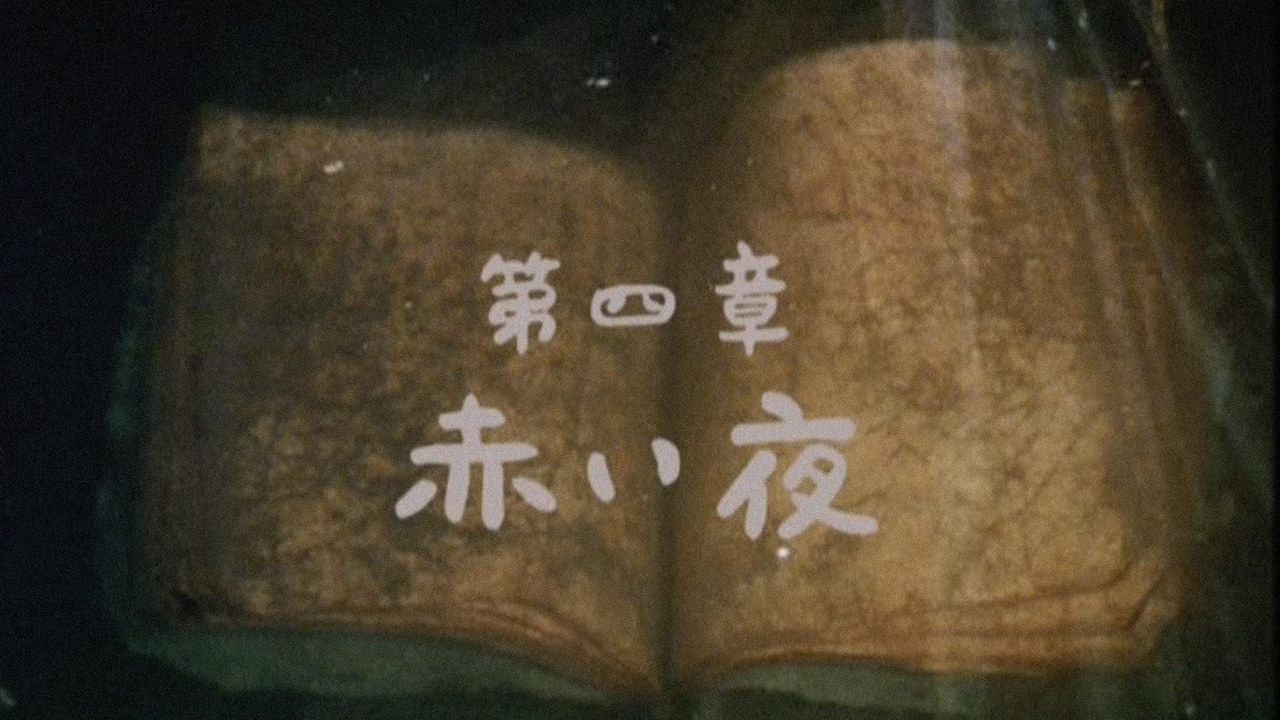 第四章
赤い夜